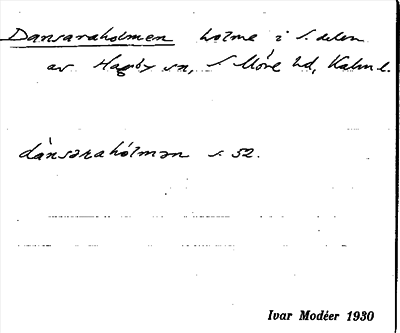 Dansaraholmen holme i S. delen
av Hagby sn, S Möre hd, Kalm l.
dànsarahólmən s. 52.
Ivar Modéer 1930